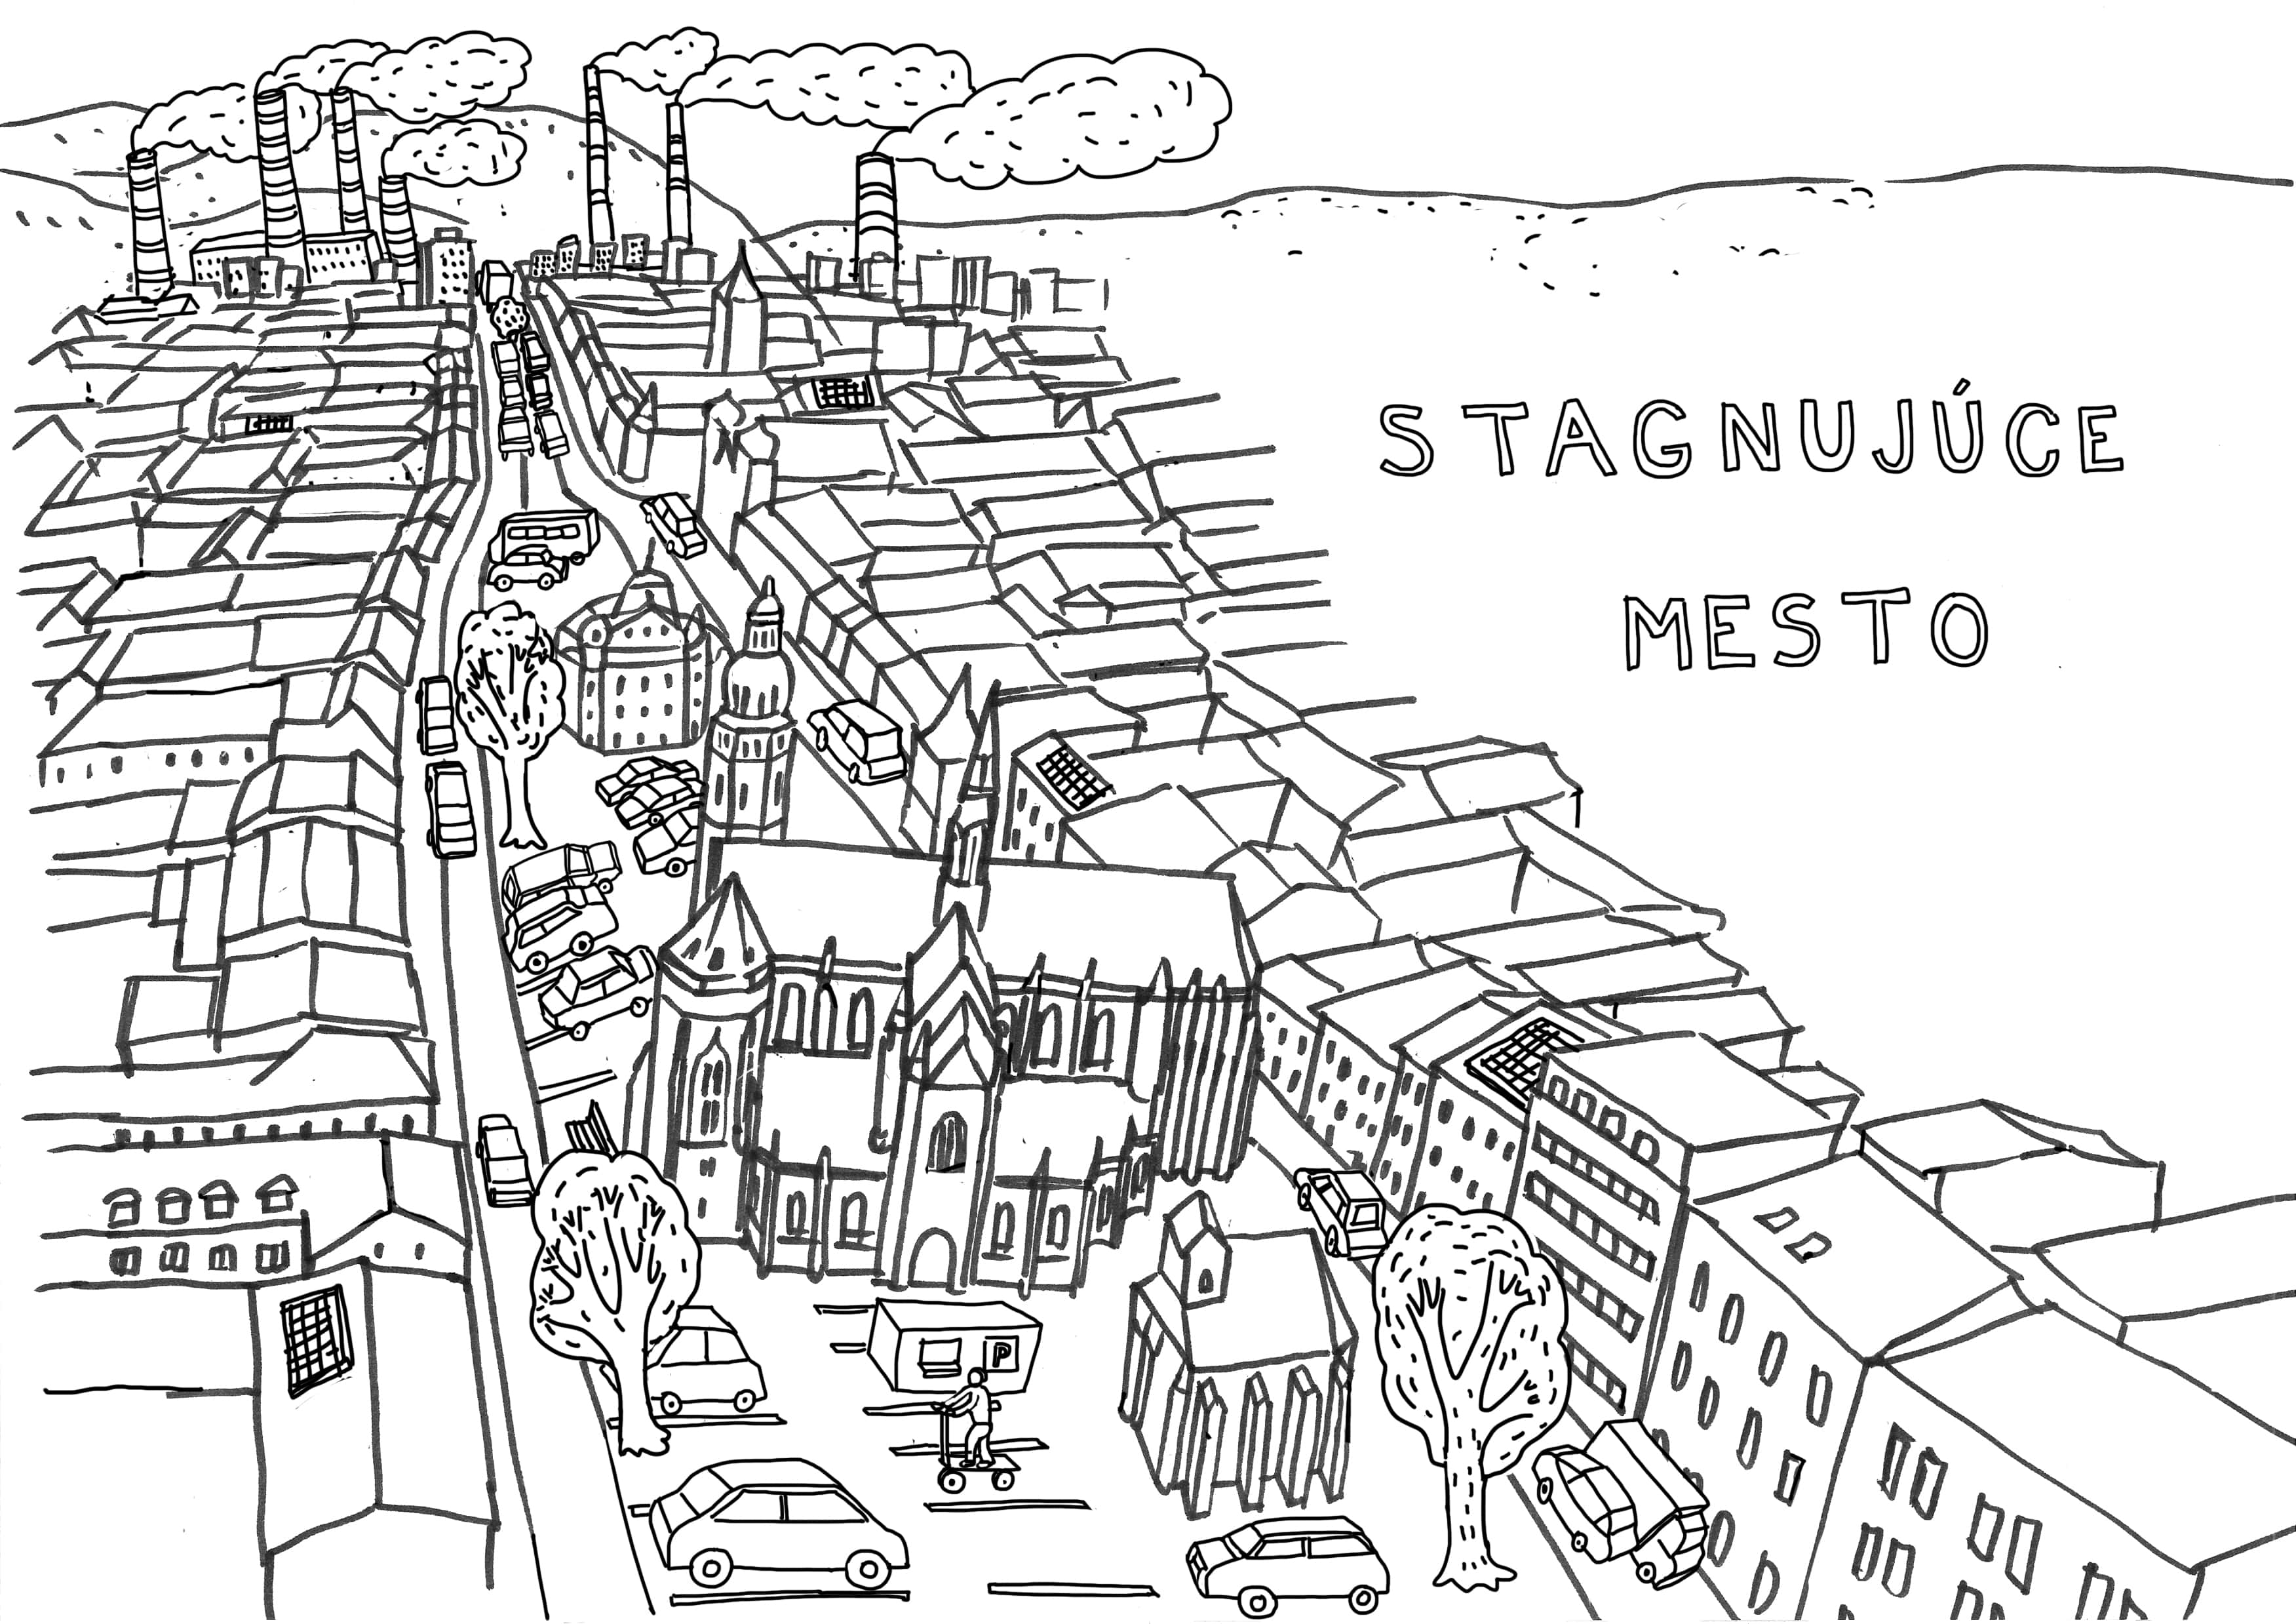 STAGNUJÚCE
MESTO
P